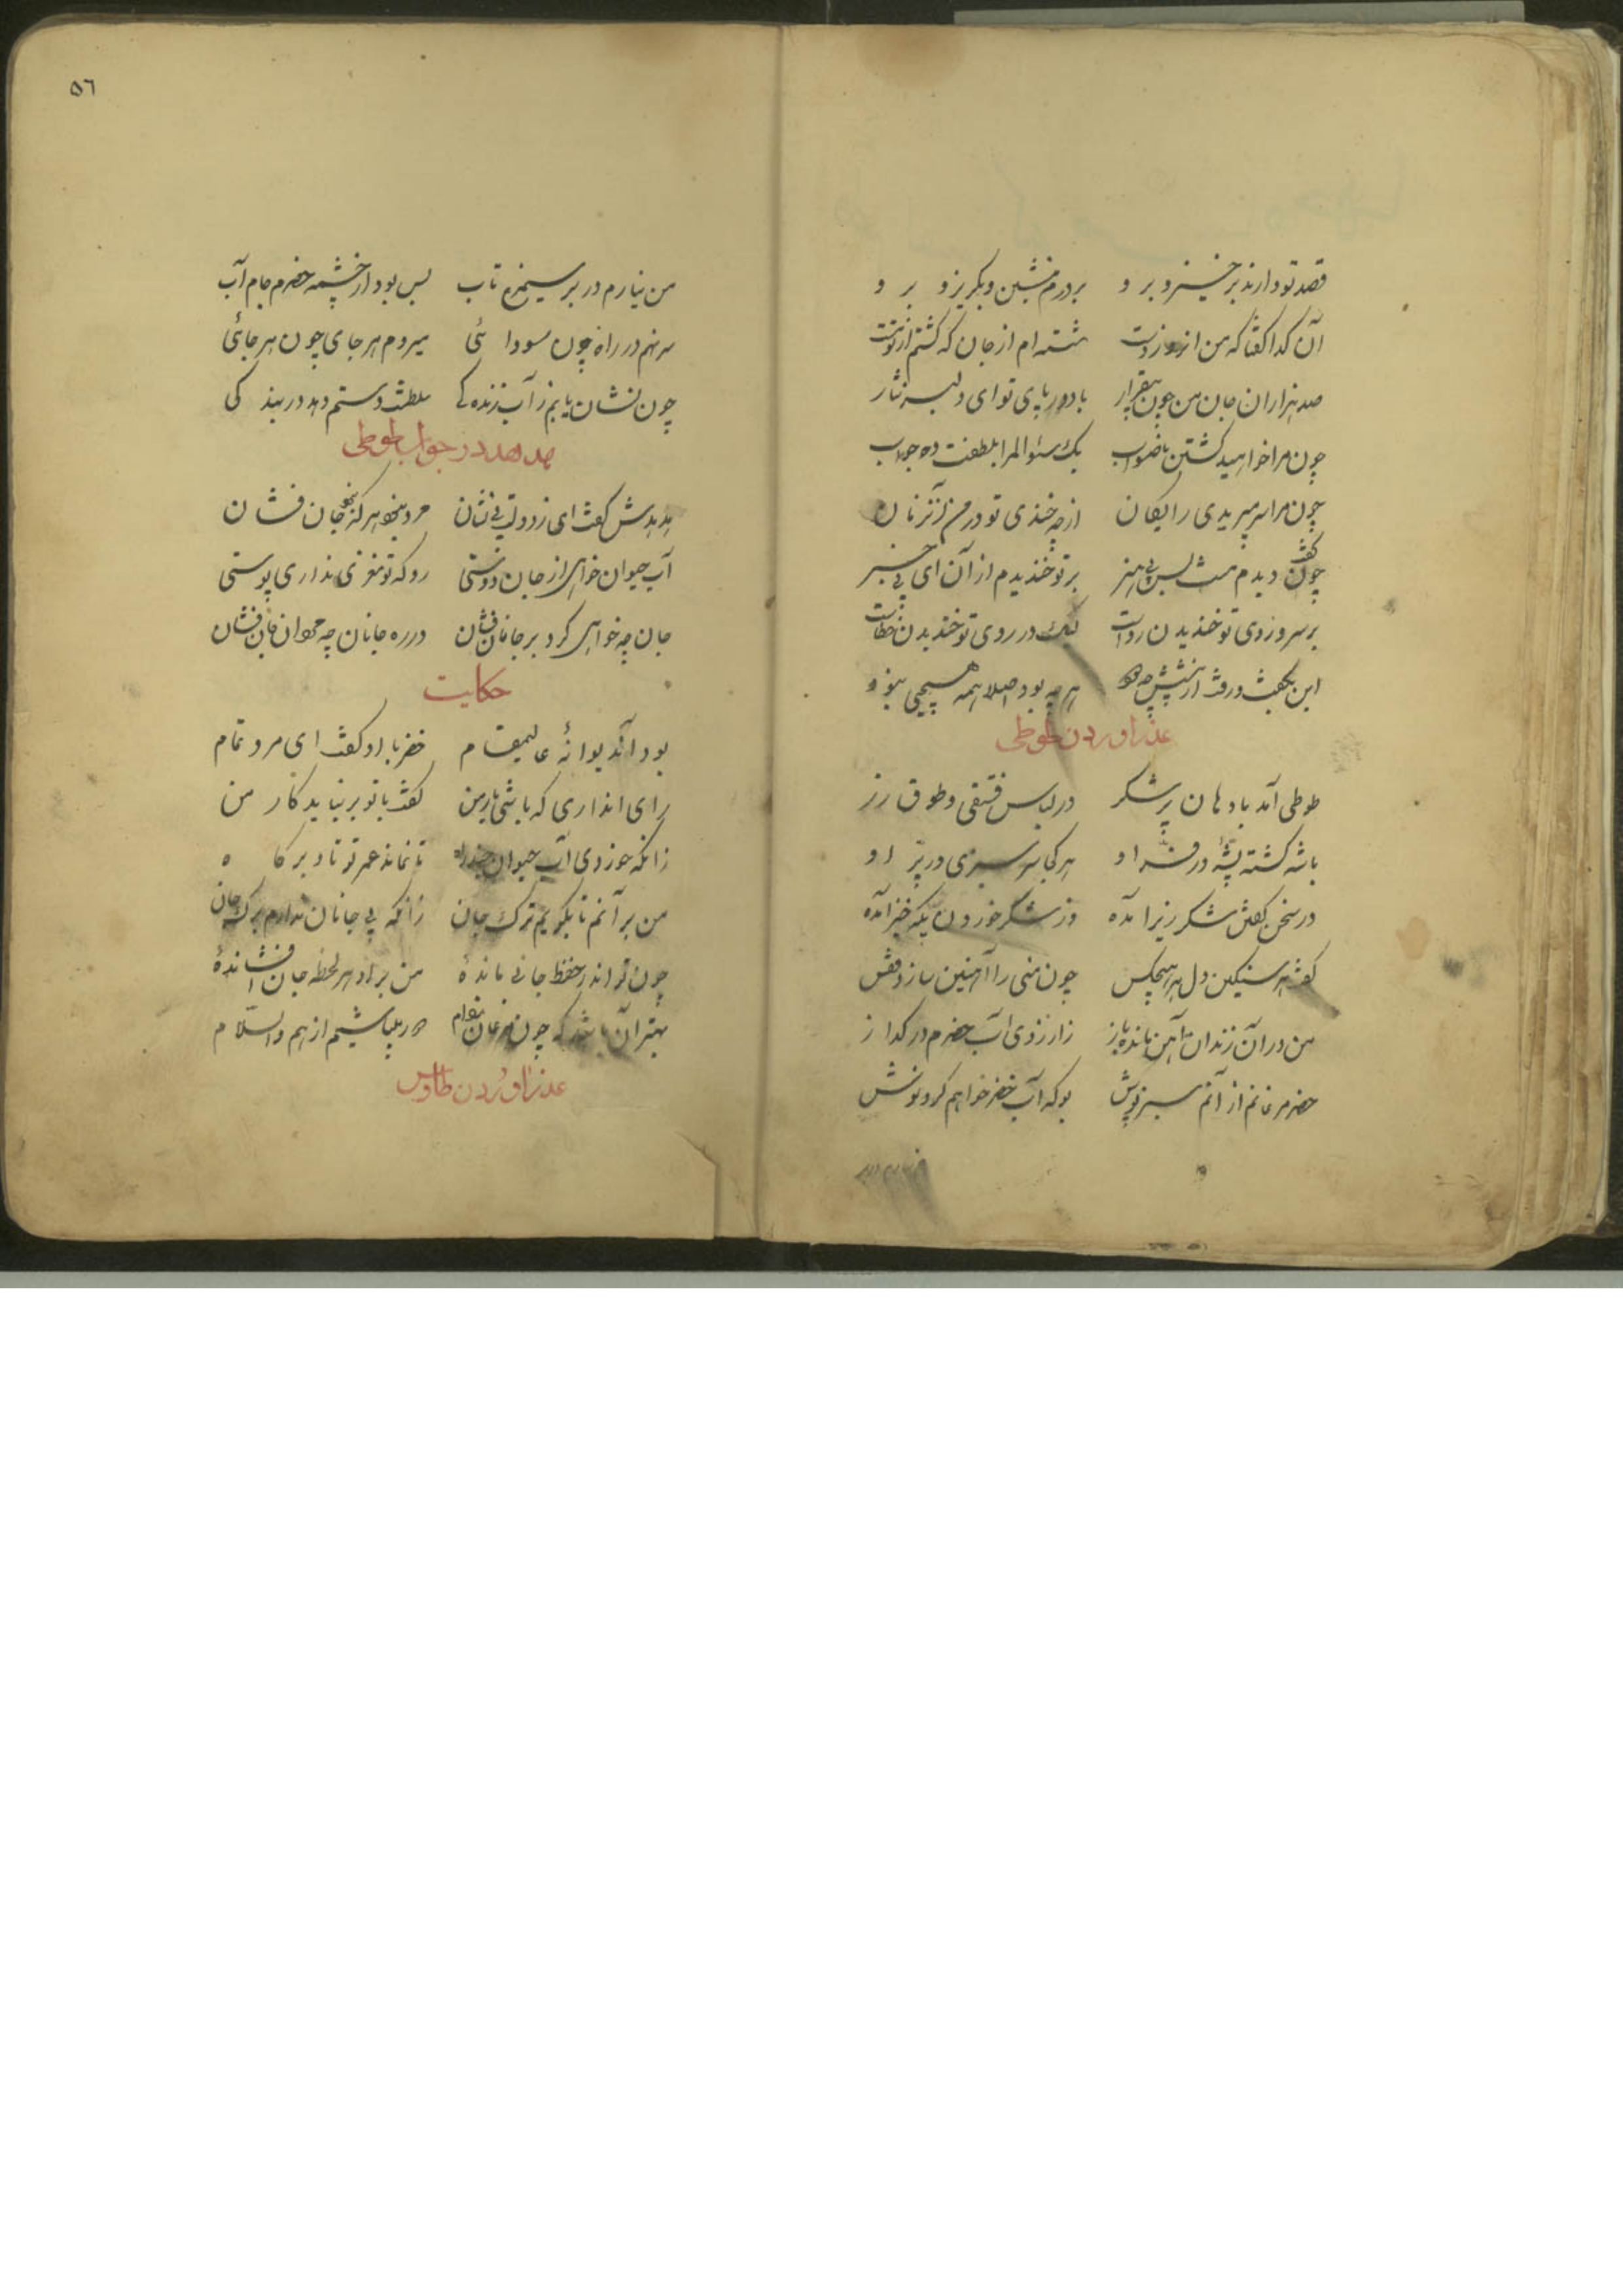 قصد تو دارند برخیز و برو بر درم منشین و بگریز و برو
آن گدا گفتا که من آن روز دست شسته‌ام از جان که گشتم از تو مست
صد هزاران جان من چون بیقرار باد در پای تو ای دلبر نثار
چون مرا خواهید کشتن ناصواب یک سئوالم را بلطفت ده جواب
چون مرا سر میبریدی رایکان از چه خندیدی تو در من آنزمان
گفت چون دیدم مت بس بی هنر بر تو خندیدم از آن ای بی خبر
بر سر و روی تو خندیدن رواست لیک در روی تو خندیدن خطاست
این بگفت و رفت از پیشش چو دود هر چه بود اصلا همه هیچی نبود
عذر اوردن طوطی
طوطی آمد با دهان پر شکر در لباس فستقی و طوق زر
باشه گشته پشهٔ در فر او هر کجا سرسبزی در پر او
در سخن گفتن شکر ریز آمده وز شکر خوردن پگه خیز آمده
گفت هر سنگین دل و هر هیچکس چون منی را آهنین سازد قفس
من در آن زندان آهن مانده باز ز آرزوی آب خضرم در گداز
خضر مرغانم از آنم سبزپوش بو که آب خضر خواهم کرد نوش
٥٦
من نیارم در بر سیمرغ تاب بس بود از چشمه خضرم جام آب
سر نهم در راه چون سودائی میروم هر جای چون هر جائی
چون نشان یابم ز آب زندگی سلطنت دستم دهد در بندگی
هدهد در جواب طوطی
هدهدش گفت ای ز دولت بی نشان مرد نبود هر که نبود جان فشان
آب حیوان خواهی از جان دوستی رو که تو مغزی نداری پوستی
جان چه خواهی کرد بر جانان فشان در ره جانان چو مردان جان فشان
حکایت
بود آن دیوانهٔ عالیمقام خضر با او گفت ای مرد تمام
رای آنداری که باشی یار من گفت با تو بر نیاید کار من
زانکه خوردی آب حیوان چند راه تا نماند عمر تو تا دیرگاه
من بر آنم تا بگویم ترک جان زانکه بی جانان ندارم برگ جان
چون تو اندر حفظ جانی ماندهٔ من بر او هر لحظه جان افشاندهٔ
بهتر آن باشد که چون مرغان ز دام دور میباشیم از هم والسلام
عذر اوردن طاوس